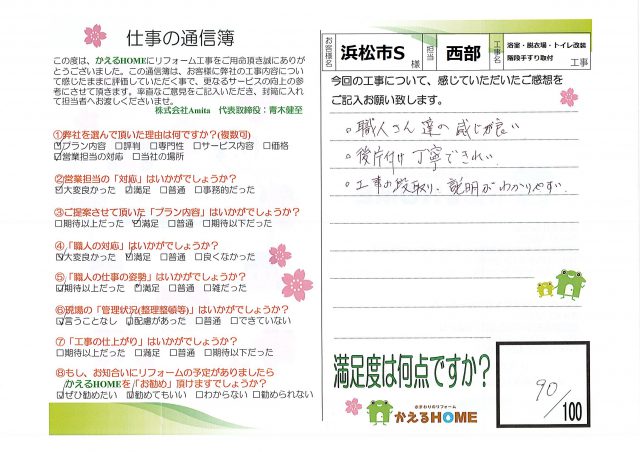 仕事の通信簿
この度は、かえるHOMEにリフォーム工事をご用命頂き誠にありが
とうございました。この通信簿は、お客様に弊社の工事内容につい
て感じたままに評価していただく事で、更なるサービスの向上の参
考にさせて頂きます。率直なご意見をご記入いただき、封筒に入れ
て担当者へお渡しくださいませ。
株式会社Amita 代表取締役：青木健至
①弊社を選んで頂いた理由は何ですか？(複数可)
☑プラン内容 □評判 □専門性 □サービス内容 □価格
☑営業担当の対応 □当社の場所
②営業担当の「対応」はいかがでしょうか？
☑大変良かった □満足 □普通 □事務的だった
③ご提案させて頂いた「プラン内容」はいかがでしょうか？
□期待以上だった ☑満足 □普通 □期待以下だった
④「職人の対応」はいかがでしょうか？
☑大変良かった ☑満足 □普通 □良くなかった
⑤「職人の仕事の姿勢」はいかがでしょうか？
☑期待以上だった ☑満足 □普通 □雑だった
⑥現場の「管理状況(整理整頓等)」はいかがでしょうか？
☑言うことなし ☑配慮があった □普通 □できていない
⑦「工事の仕上がり」はいかがでしょうか？
□期待以上だった □満足 □普通 □期待以下だった
⑧もし、お知合いにリフォームの予定がありましたら
かえるHOMEを「お勧め」頂けますでしょうか？
☑ぜひ勧めたい ☑勧めてもいい □わからない □勧められない
お客様名 浜松市S 様 担当 西部 工事名 浴室・脱衣場・トイレ改装
階段手すり取付 工事
今回の工事について、感じていただいたご感想を
ご記入お願い致します。
○職人さん達の感じが良い
○後片付け丁寧できれい
○工事の段取り、説明がわかりやすい
満足度は何点ですか？
90/100
おまかせリフォーム
かえるHOME